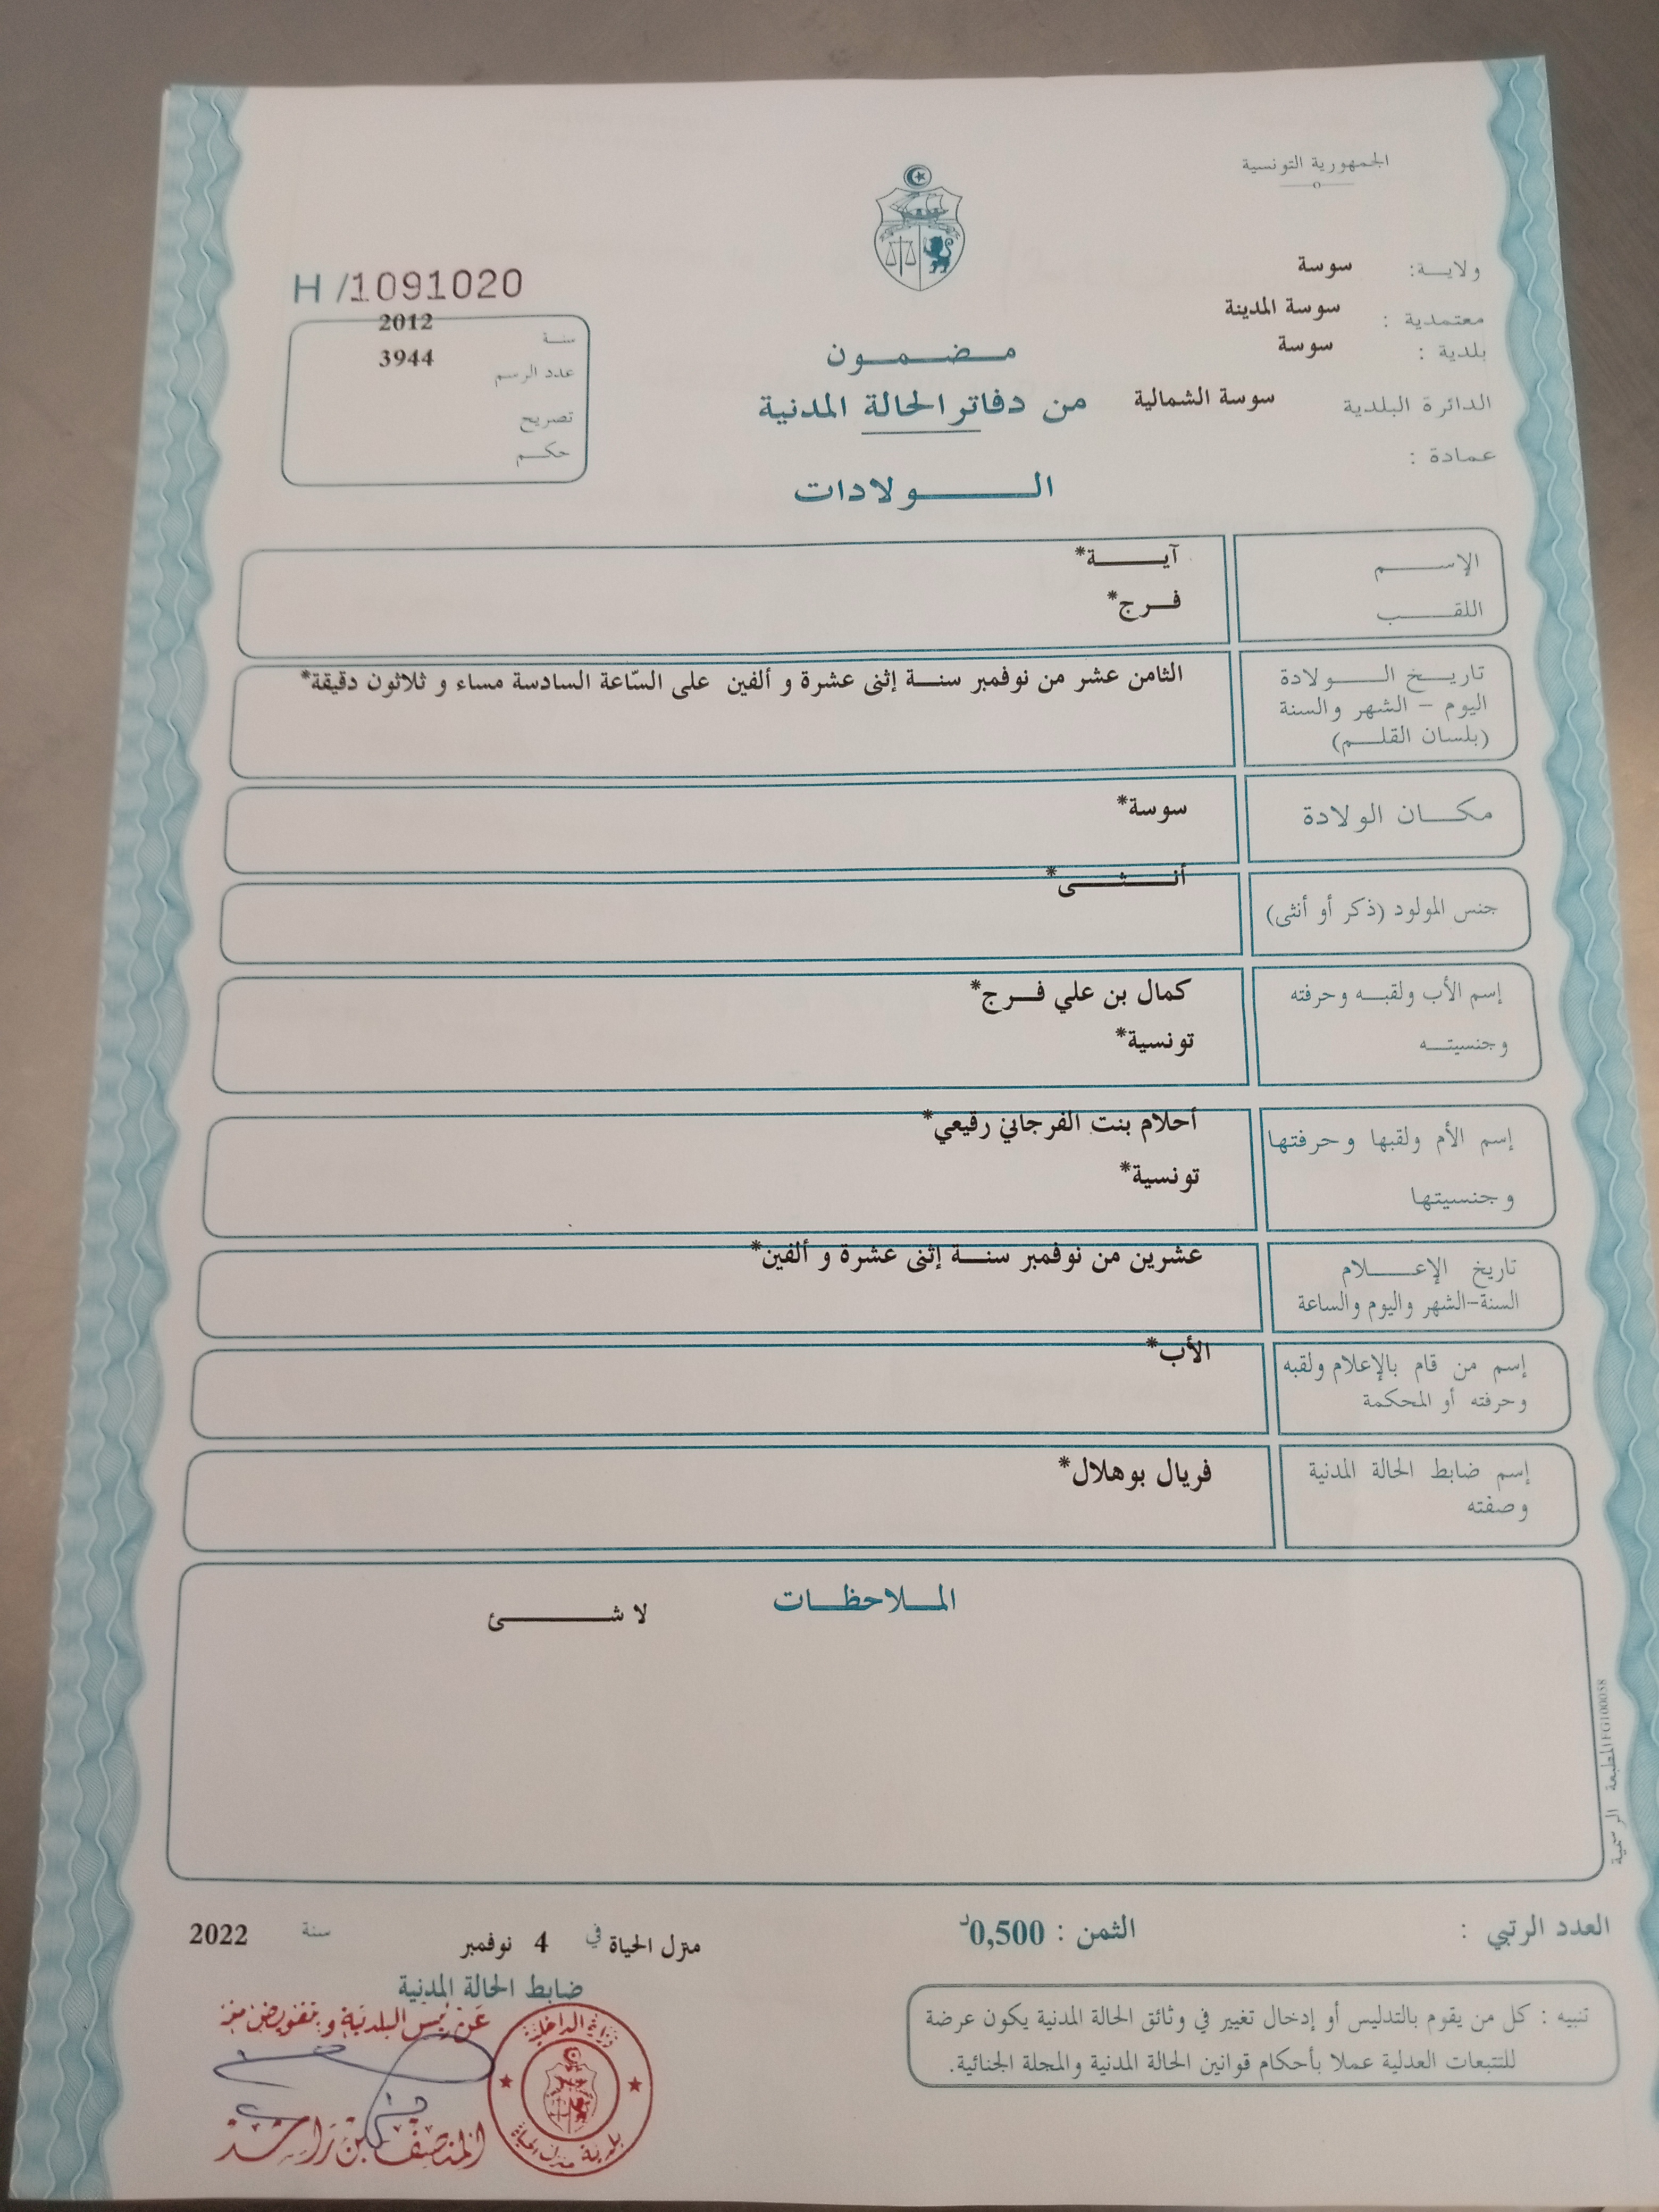 الجمهورية التونسية
ولايـــة: سوسة
معتمدية : سوسة المدينة
بلدية : سوسة
الدائرة البلدية سوسة الشمالية
عمادة :
H /1091020
سنـة 2012
عدد الرسم 3944
تصريح
حكـم
مـضـمـون
من دفاتر الحالة المدنية
الــولادات
الإســـم آيـــة*
اللقـــب فـرج*
تاريـخ الـــولادة الثامن عشر من نوفمبر سنـة إثنى عشرة و ألفين على السّاعة السادسة مساء و ثلاثون دقيقة*
اليوم - الشهر والسنة
(بلسان القلـم)
مكــان الولادة سوسة*
جنس المولود (ذكر أو أنثى) أنــثــى*
إسم الأب ولقبـه وحرفته كمال بن علي فـرج*
وجنسيتـه تونسية*
إسم الأم ولقبها وحرفتها أحلام بنت الفرجاني رقيعي*
وجنسيتها تونسية*
تاريخ الإعـــلام عشرين من نوفمبر سنـة إثنى عشرة و ألفين*
السنة-الشهر واليوم والساعة
إسم من قام بالإعلام ولقبه الأب*
وحرفته أو المحكمة
إسم ضابط الحالة المدنية فريال بوهلال*
وصفته
المــلاحظــات
لا شـــئ
المطبعة الرسمية
العدد الرتبي :
الثمن : 0,500د
منزل الحياة في 4 نوفمبر سنة 2022
ضابط الحالة المدنية
عن رئيس البلدية و بتفويض منه
المنصف بن راشد
وزارة الداخلية
بلدية منزل الحياة
تنبيه : كل من يقوم بالتدليس أو إدخال تغيير في وثائق الحالة المدنية يكون عرضة
للتتبعات العدلية عملا بأحكام قوانين الحالة المدنية والمجلة الجنائية.